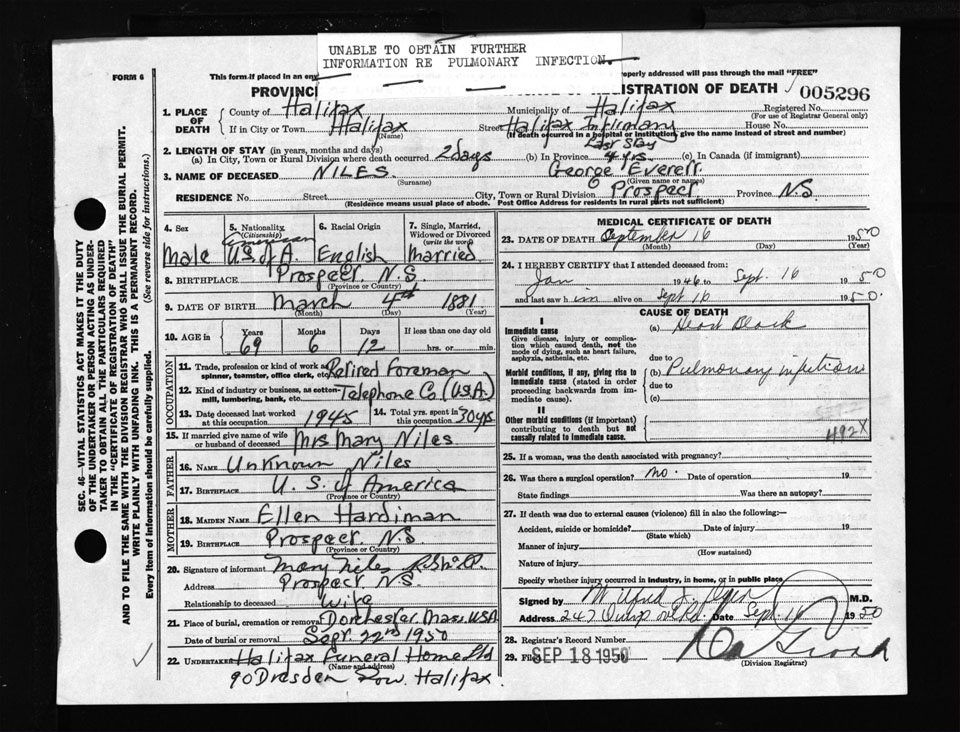 UNABLE TO OBTAIN FURTHER
INFORMATION RE PULMONARY INFECTION.
FORM 6
This form if placed in an env
properly addressed will pass through the mail "FREE"
PROVINCI
REGISTRATION OF DEATH
005296
1. PLACE OF DEATH
County of Halifax
Municipality of Halifax
Registered No.
(For use of Registrar General only)
If in City or Town Halifax
(Name)
Street Halifax Infirmary
House No.
(If death occurred in a hospital or institution, give the name instead of street and number)
Last Stay
2. LENGTH OF STAY (in years, months and days)
(a) In City, Town or Rural Division where death occurred 2 days
(b) In Province 4 yrs.
(c) In Canada (if immigrant)
3. NAME OF DECEASED NILES.
(Surname)
George Everett.
(Given name or names)
RESIDENCE No. Street
City, Town or Rural Division Prospect
Province N.S
(Residence means usual place of abode. Post Office Address for residents in rural parts not sufficient)
4. Sex
Male
5. Nationality
(Citizenship)
American
U.S of A.
6. Racial Origin
English
7. Single, Married, Widowed or Divorced
(write the word)
Married
8. BIRTHPLACE Prospect N.S.
(Province or Country)
9. DATE OF BIRTH March 4th 1881
(Month) (Day) (Year)
10. AGE in Years Months Days If less than one day
69 6 12 hrs. or min.
OCCUPATION
11. Trade, profession or kind of work as spinner, teamster, office clerk, etc. Retired Foreman
12. Kind of industry or business, as cotton-mill, lumbering, bank, etc. Telephone Co (U.S.A.)
13. Date deceased last worked at this occupation 1945
14. Total yrs. spent in this occupation 30 yrs
15. If married give name of wife or husband of deceased Mrs Mary Niles
FATHER
16. NAME Unknown Niles
17. BIRTHPLACE U.S. of America
(Province or Country)
MOTHER
18. MAIDEN NAME Ellen Hardiman
19. BIRTHPLACE Prospect N.S
(Province or Country)
20. Signature of informant Mary Niles
Address Prospect N.S.
Relationship to deceased Wife
21. Place of burial, cremation or removal Dorchester Mass. USA
Date of burial or removal Sept. 22nd 1950
22. Undertaker Halifax Funeral Home Ltd
(Name and address)
90 Dresden Row. Halifax
MEDICAL CERTIFICATE OF DEATH
23. DATE OF DEATH September 16 1950
(Month) (Day) (Year)
24. I HEREBY CERTIFY that I attended deceased from:
Jan 1946 to Sept. 16 1950
and last saw him alive on Sept 16 1950.
CAUSE OF DEATH
I
Immediate cause
Give disease, injury or complication which caused death, not the mode of dying, such as heart failure, asphyxia, asthenia, etc.
(a) Heart Block
due to
Morbid conditions, if any, giving rise to immediate cause (stated in order proceeding backwards from immediate cause).
(b) Pulmonary infection
due to
(c)
II
Other morbid conditions (if important) contributing to death but not causally related to immediate cause.
492X
25. If a woman, was the death associated with pregnancy?
26. Was there a surgical operation? No. Date of operation 19
State findings Was there an autopsy?
27. If death was due to external causes (violence) fill in also the following:—
Accident, suicide or homicide? Date of injury 19
(State which)
Manner of injury
(How sustained)
Nature of injury
Specify whether injury occurred in industry, in home, or in public place
Signed by M.D.
Address 247 Date Sept. 16 1950
28. Registrar's Record Number
29. Filed SEP 18 1950
(Division Registrar)
SEC. 46—VITAL STATISTICS ACT MAKES IT THE DUTY
OF THE UNDERTAKER OR PERSON ACTING AS UNDER-
TAKER TO OBTAIN ALL THE PARTICULARS REQUIRED
IN THE "CERTIFICATE OF REGISTRATION OF DEATH"
AND TO FILE THE SAME WITH THE DIVISION REGISTRAR WHO SHALL ISSUE THE BURIAL PERMIT.
WRITE PLAINLY WITH UNFADING INK. THIS IS A PERMANENT RECORD.
Every item of information should be carefully supplied. (See reverse side for instructions.)